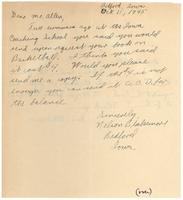 Bedford, Iowa
Oct 11, 1945
Dear Mr Allen,
Two summers ago at the Iowa
Coaching School you said you would
send upon request your book on
Basketball. I think you said
it cost $4. Would you please
send me a copy. If the $4 is not
enough you can send it C.O.D. for
the balance.
Sincerely
Nelson
Bedford
Iowa
(over)